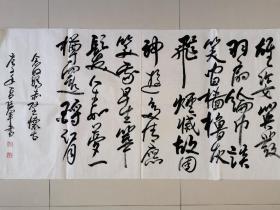 雄姿英發
羽扇綸巾談
笑間檣櫓灰
飛煙滅故國
神遊多情應
笑我早生華
髮人生如夢一
樽還酹江月
念奴嬌赤壁懷古